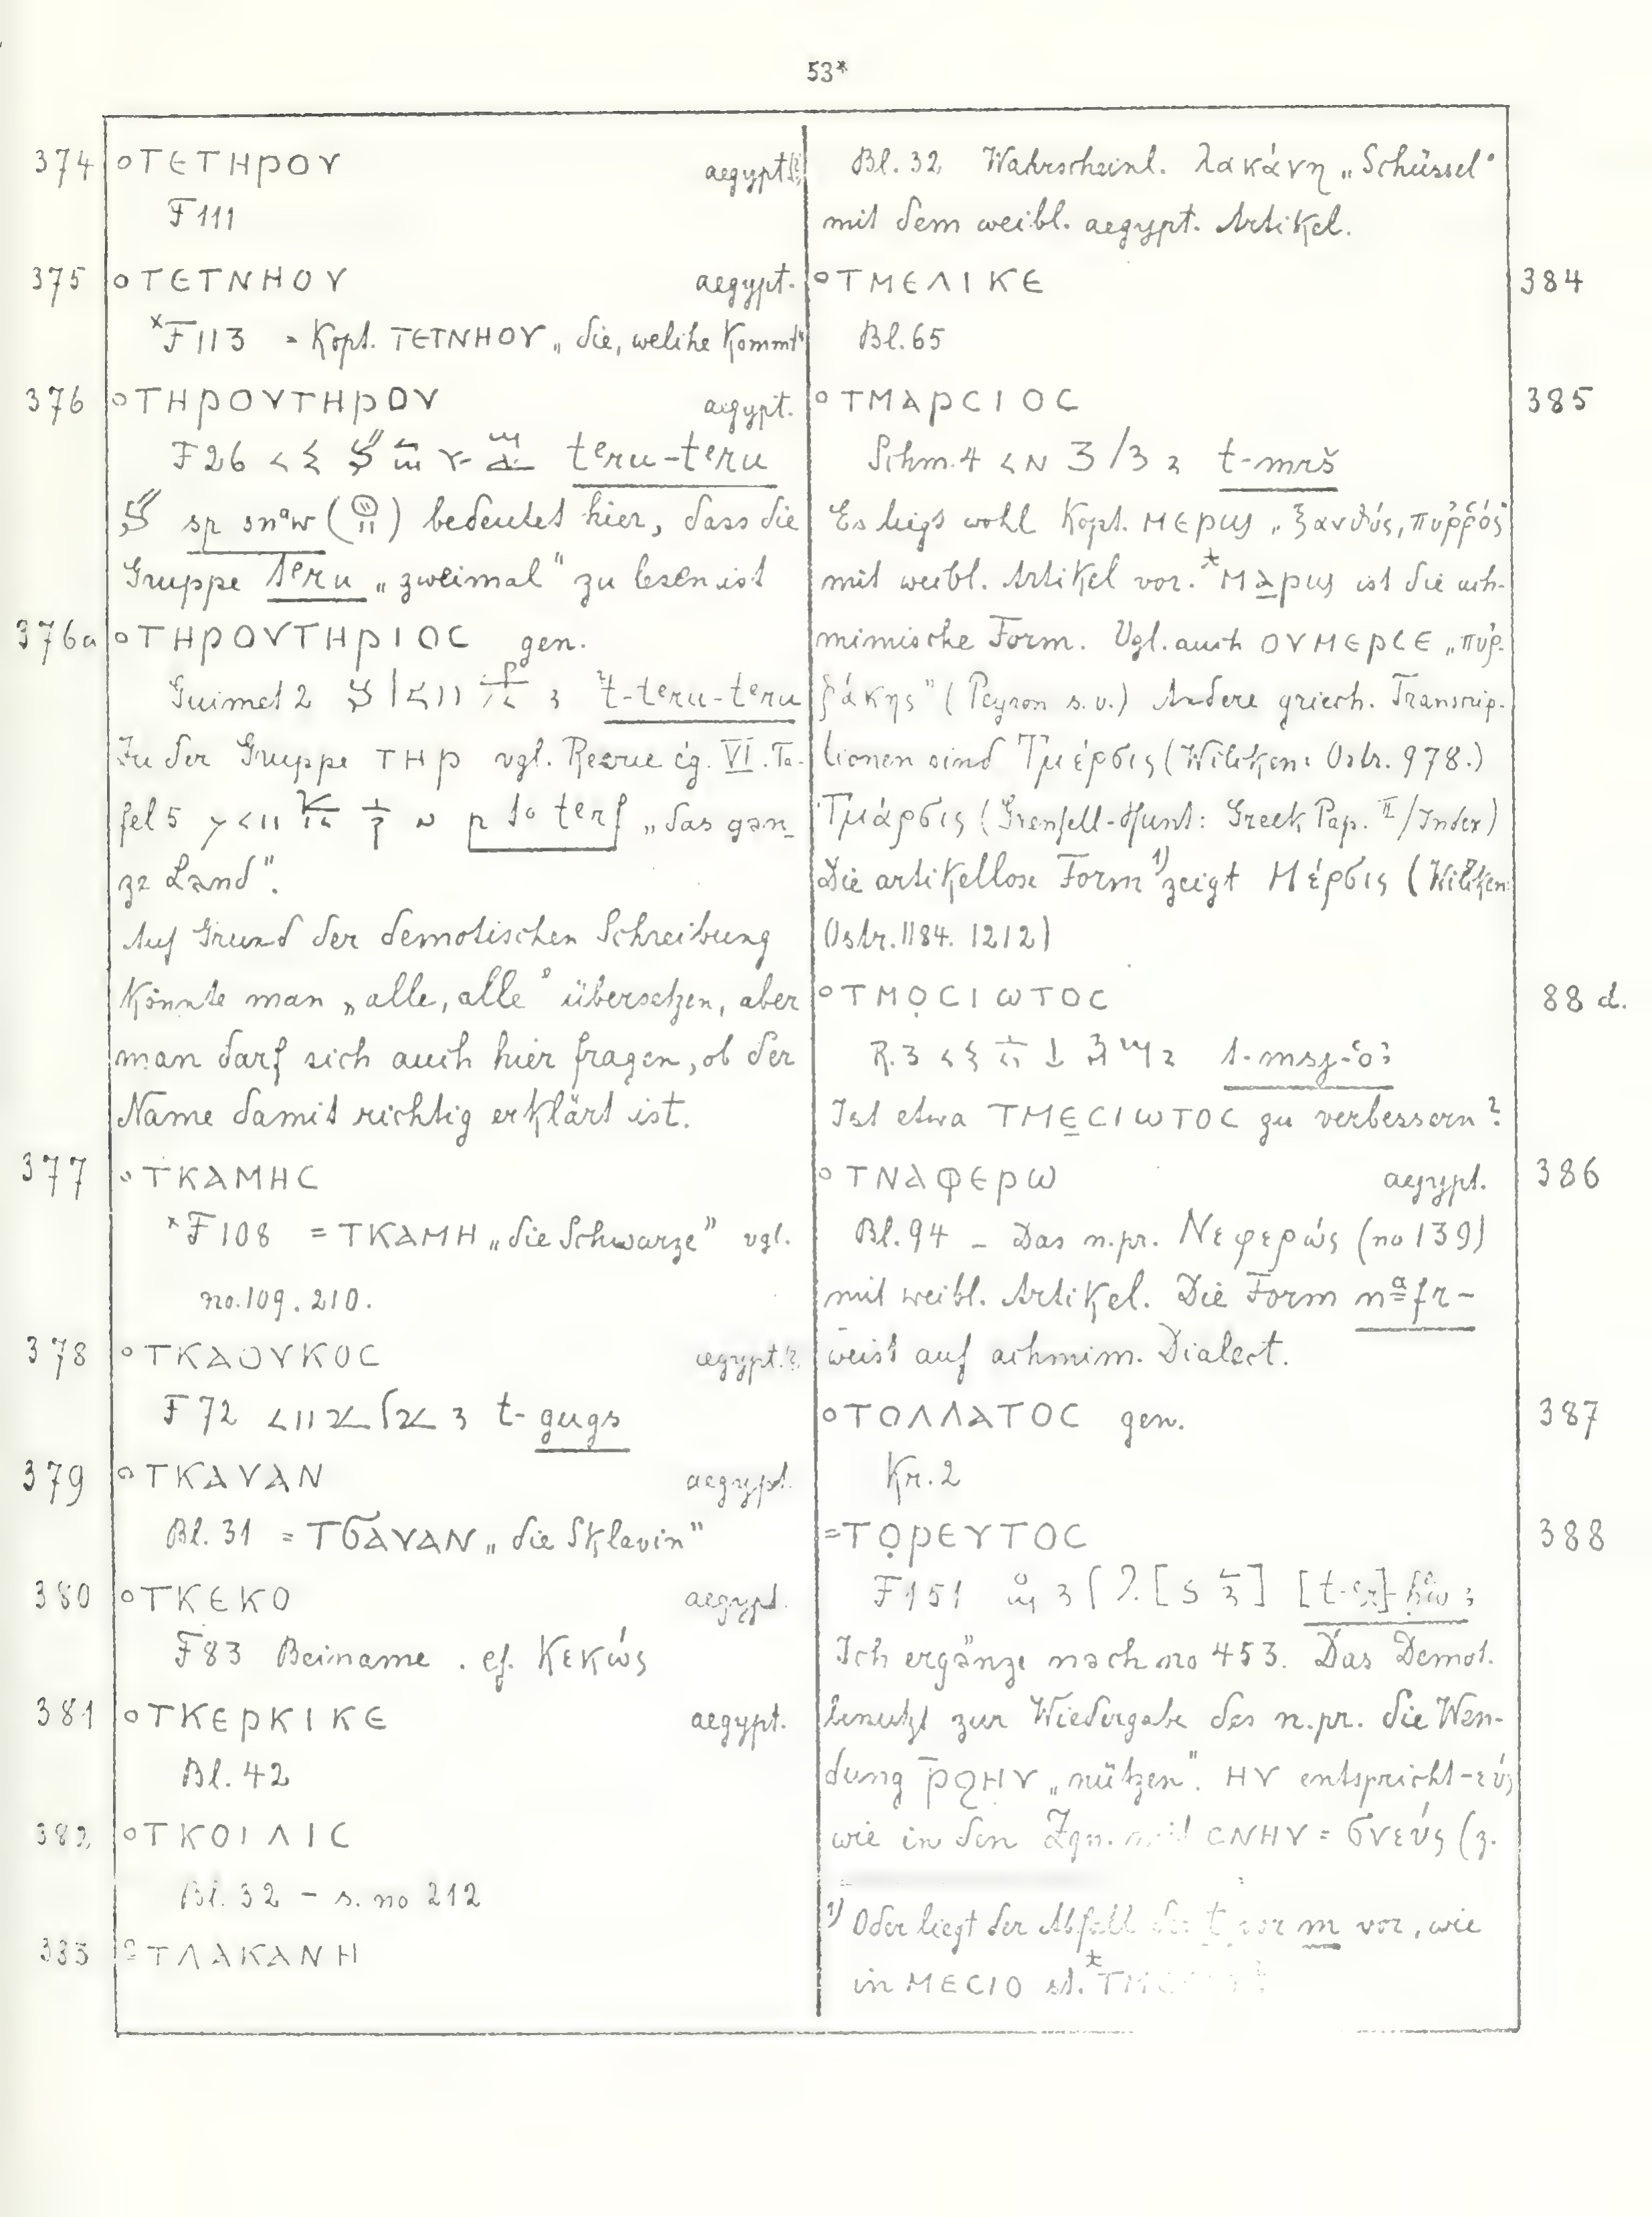 53*
374 ○ΤΕΤΗΡΟΥ aegypt(?)
F 111
375 ○ΤΕΤΝΗΟΥ aegypt.
*F 113 = Kopt. ΤΕΤΝΗΟΥ „die, welche kommt"
376 ○ΤΗΡΟΥΤΗΡΟΥ aegypt.
F 26 teru-teru
sp snꜣw ( ) bedeutet hier, dass die
Gruppe teru „zweimal" zu lesen ist
376a ○ΤΗΡΟΥΤΗΡΙΟC gen.
Guimet 2 t-teru-teru
Zu der Gruppe ΤΗΡ vgl. Revue ég. VI. Ta-
fel 5 p to terf „das gan-
ze Land".
Auf Grund der demotischen Schreibung
könnte man „alle, alle" übersetzen, aber
man darf sich auch hier fragen, ob der
Name damit richtig erklärt ist.
377 ○ΤΚΑΜΗC
*F 108 = ΤΚΑΜΗ „die Schwarze" vgl.
no. 109. 210.
378 ○ΤΚΑΟΥΚΟC aegypt.(?)
F 72 t-gugs
379 ○ΤΚΑΥΑΝ aegypt.
Bl. 31 = ΤϬΑΥΑΝ „die Sklavin"
380 ○ΤΚΕΚΟ aegypt.
F 83 Beiname. cf. Κεκώς
381 ○ΤΚΕΡΚΙΚΕ aegypt.
Bl. 42
382 ○ΤΚΟΙΛΙC
Bl. 32 – s. no 212
383 ΤΛΑΚΑΝΗ
Bl. 32 Wahrscheinl. λακάνη „Schüssel"
mit dem weibl. aegypt. Artikel.
○ΤΜΕΛΙΚΕ 384
Bl. 65
○ΤΜΑΡCΙΟC 385
Schm. 4 t-mrš
Es liegt wohl Kopt. ⲙⲉⲣϣ „ξανθός, πυῤῥός"
mit weibl. Artikel vor. *ⲙⲁⲣϣ ist die ach-
mimische Form. Vgl. auch ΟΥΜΕΡCΕ „πυῤ-
ῥάκης" (Peyron s.v.) Andere griech. Transcrip-
tionen sind Τμέρσις (Wilcken: Ostr. 978.)
Τμάρσις (Grenfell-Hunt: Greek Pap. II / Index)
Die artikellose Form 1) zeigt Μέρσις (Wilcken:
Ostr. 1184. 1212)
○ΤΜΟ̣CΙωΤΟC 88 d.
R. 3
Ist etwa ΤΜΕCΙωΤΟC zu verbessern?
○ΤΝΑΦΕΡω aegypt. 386
Bl. 94 – Das n.pr. Νεφερώς (no 139)
mit weibl. Artikel. Die Form nafr-
weist auf achmim. Dialect.
○ΤΟΛΛΑΤΟC gen. 387
Kr. 2
=ΤΟ̣ΡΕΥΤΟC 388
F 151
Ich ergänze nach no 453. Das Demot.
benutzt zur Wiedergabe des n.pr. die Wen-
dung ⲣ̄ϩⲏⲩ „nützen". ΗΥ entspricht -εύς
wie in den Zgn. mit CΝΗΥ = σνεύς (z.
1) Oder liegt der Abfall des t vor m vor, wie
in ΜΕCΙΟ st.